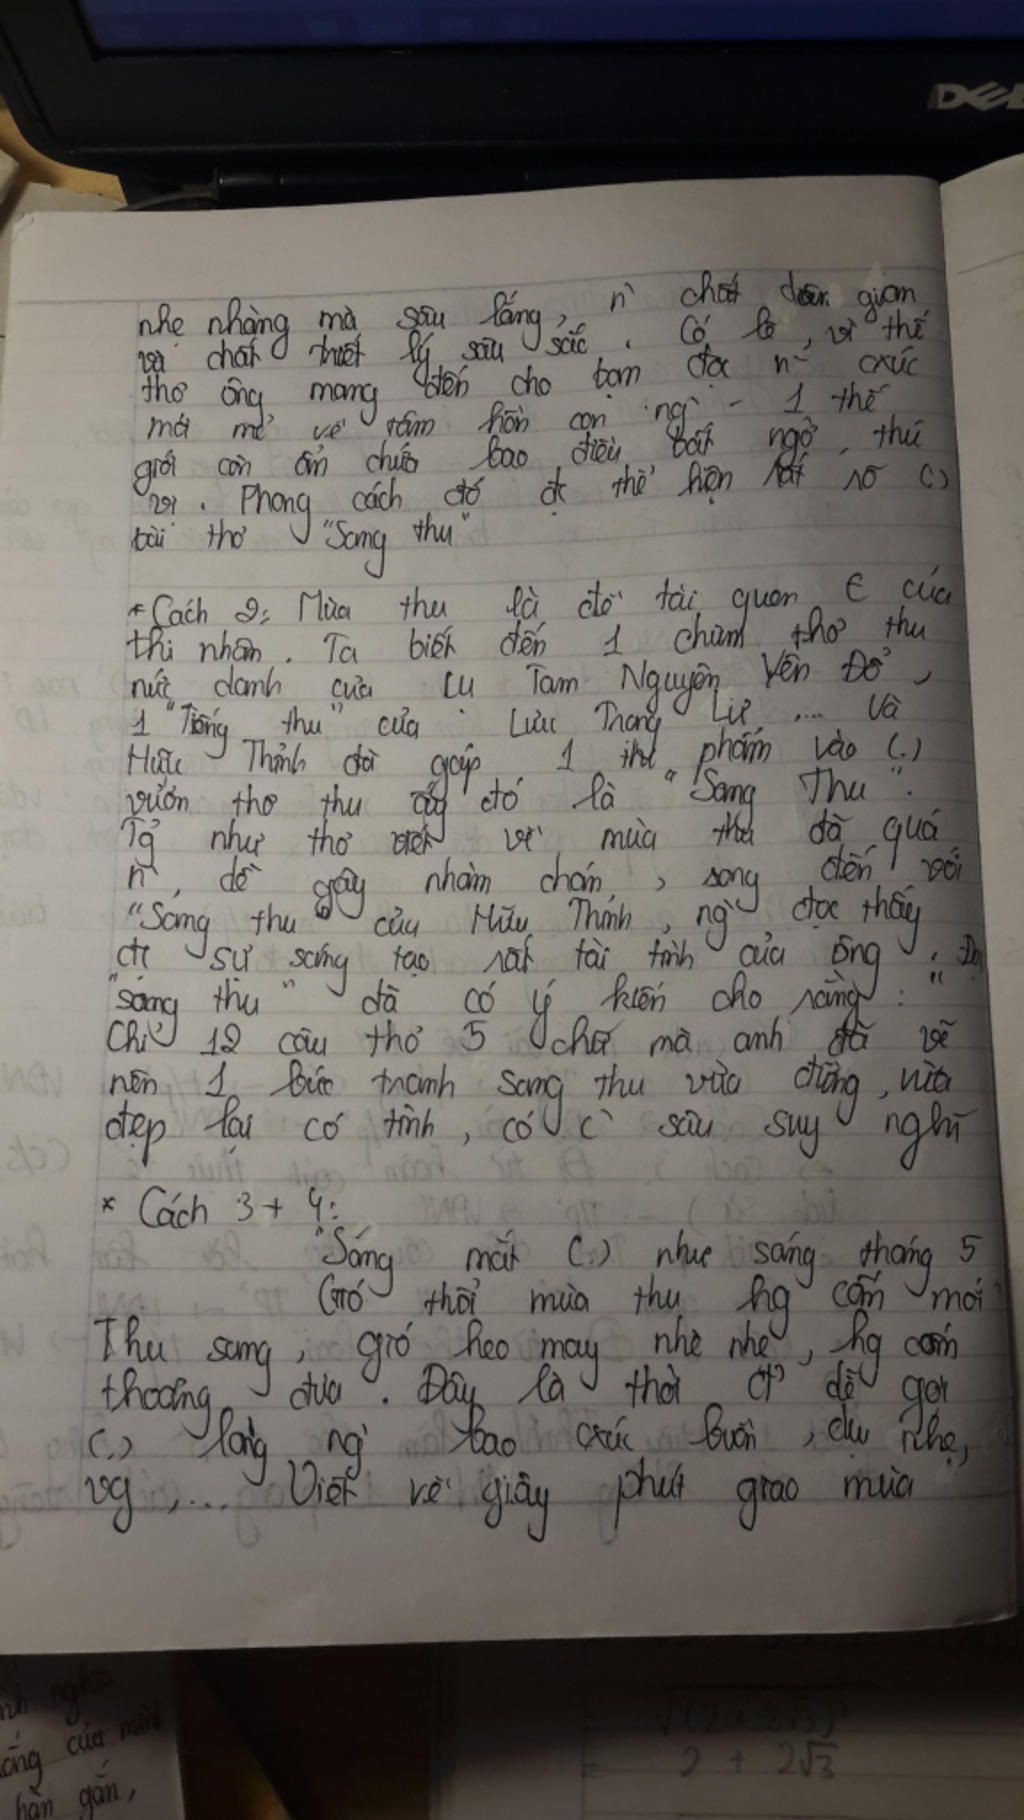 DELL
nhẹ nhàng mà sâu lắng, n` chất dân gian
và chất triết lý sâu sắc. Có lẽ, vì thế
thơ ông mang đến cho bạn đọc n~ cxúc
mới mẻ về tâm hồn con ng` - 1 thế
giới còn ẩn chứa bao điều bất ngờ, thú
vị. Phong cách đó đc thể hiện rất rõ (.)
bài thơ "Sang thu"
* Cách 2: Mùa thu là đề tài quen € của
thi nhân. Ta biết đến 1 chùm thơ thu
nức danh của cụ Tam Nguyên Yên Đổ,
1 "Tiếng thu" của Lưu Trọng Lư, ... Và
Hữu Thỉnh đã góp 1 thi phẩm vào (.)
vườn thơ thu ấy đó là "Sang Thu".
Tg như thơ viết về mùa thu đã quá
n`, dễ gây nhàm chán, song đến với
"Sang thu" của Hữu Thỉnh, ng` đọc thấy
đc sự sáng tạo rất tài tình của ông.
"sang thu" đã có ý kiến cho rằng: "
Chỉ 12 câu thơ 5 chữ mà anh đã vẽ
nên 1 bức tranh sang thu vừa đúng, vừa
đẹp lại có tình, có c` sâu suy nghĩ
* Cách 3 + 4:
"Sáng mát (.) như sáng tháng 5
Gió thổi mùa thu hg cốm mới
Thu sang, gió heo may nhè nhẹ, hg cốm
thoảng đưa. Đây là thời đ' dễ gợi
(.) lòng ng` bao cxúc buồn, dịu nhẹ,
vg,... Viết về giây phút giao mùa
của mình
hàn gắn,
2 + 2√3